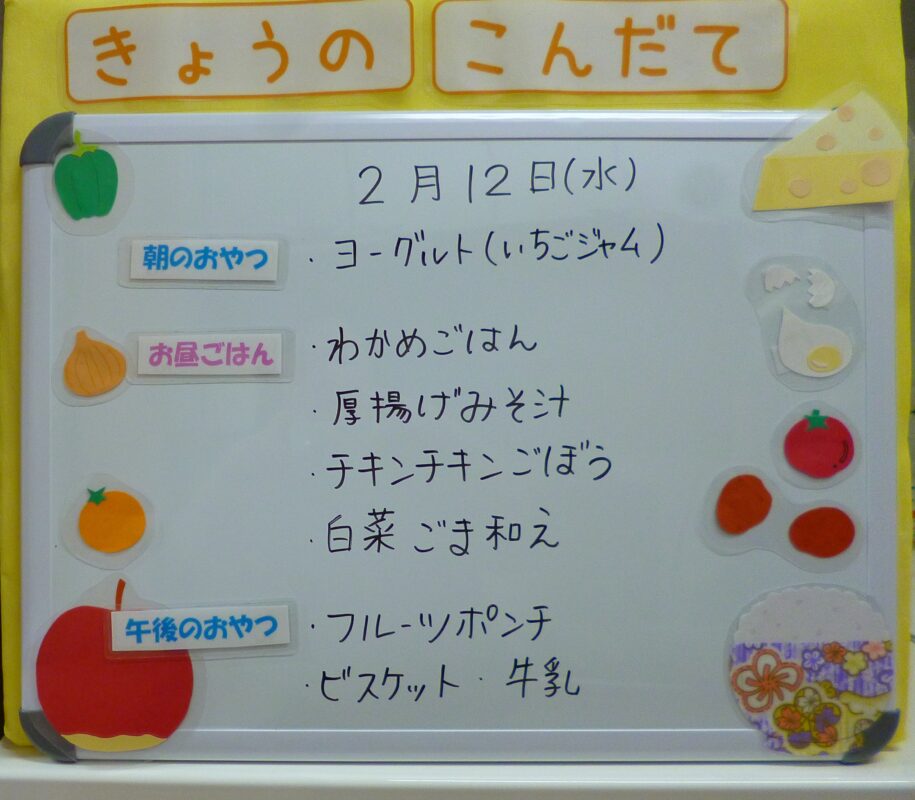 きょうの こんだて
2月12日(水)
朝のおやつ ・ヨーグルト(いちごジャム)
お昼ごはん ・わかめごはん
・厚揚げみそ汁
・チキンチキンごぼう
・白菜ごま和え
午後のおやつ ・フルーツポンチ
・ビスケット・牛乳